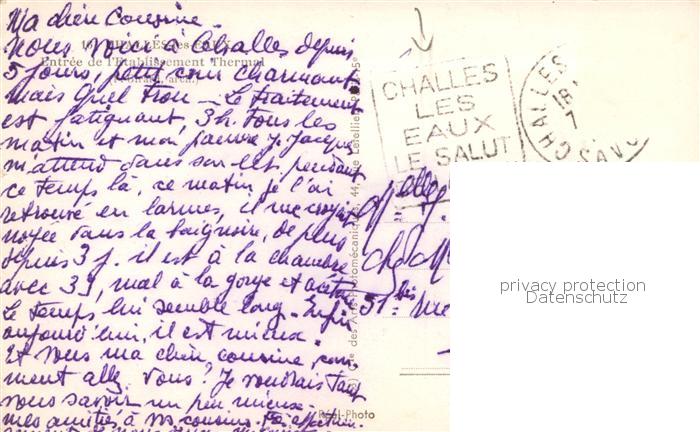 Ma chère Cousine.
Nous voici à Challes depuis
5 jours, petit coin charmant
mais quel trou – Le traitement
est fatiguant, 3h. tous les
matin et mon pauvre J. Jacques
m'attend dans son lit pendant
ce temps là, ce matin je l'ai
retrouvé en larmes, il me croyait
noyée dans la baignoire, de plus
depuis 3 j. il est à la chambre
avec 39, mal à la gorge et
le temps lui semble long. Enfin
aujourd'hui, il est mieux.
Et vous ma chère cousine, com-
ment allez vous? Je voudrais tant
vous savoir un peu mieux.
mes amitiés à M. cousin.
CHALLES-les-EAUX
Entrée de l'Etablissement Thermal
CHALLES
LES
EAUX
LE SALUT
CHALLES
18
7
SAVOIE
des Arts Photomécaniques, 44, Letellier
Réal-Photo
51 bis rue
privacy protection
Datenschutz